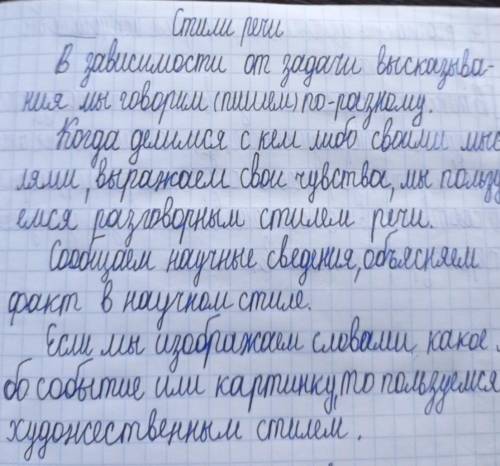 Стили речи
В зависимости от задачи высказыва-
ния мы говорим (пишем) по-разному.
Когда делимся с кем либо своими мыс
лями, выражаем свои чувства, мы пользу
емся разговорным стилем речи.
Сообщаем научные сведения, объясняем
факт в научном стиле.
Если мы изображаем словами какое
об событие или картинку, то пользуемся
художественным стилем.